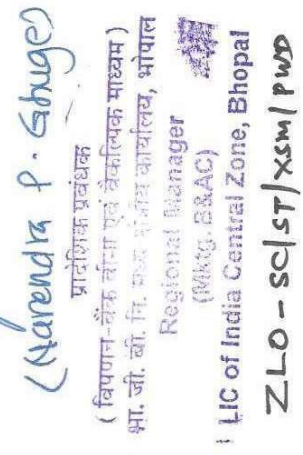 (Narendra P. Ghuge)
प्रादेशिक प्रबंधक
( विपणन-बैंक बीमा एवं वैकल्पिक माध्यम )
भा. जी. बी. नि. मध्य क्षेत्रीय कार्यालय, भोपाल
Regional Manager
(Mktg. B&AC)
LIC of India Central Zone, Bhopal
ZLO - SC/ST/XSM/PWD